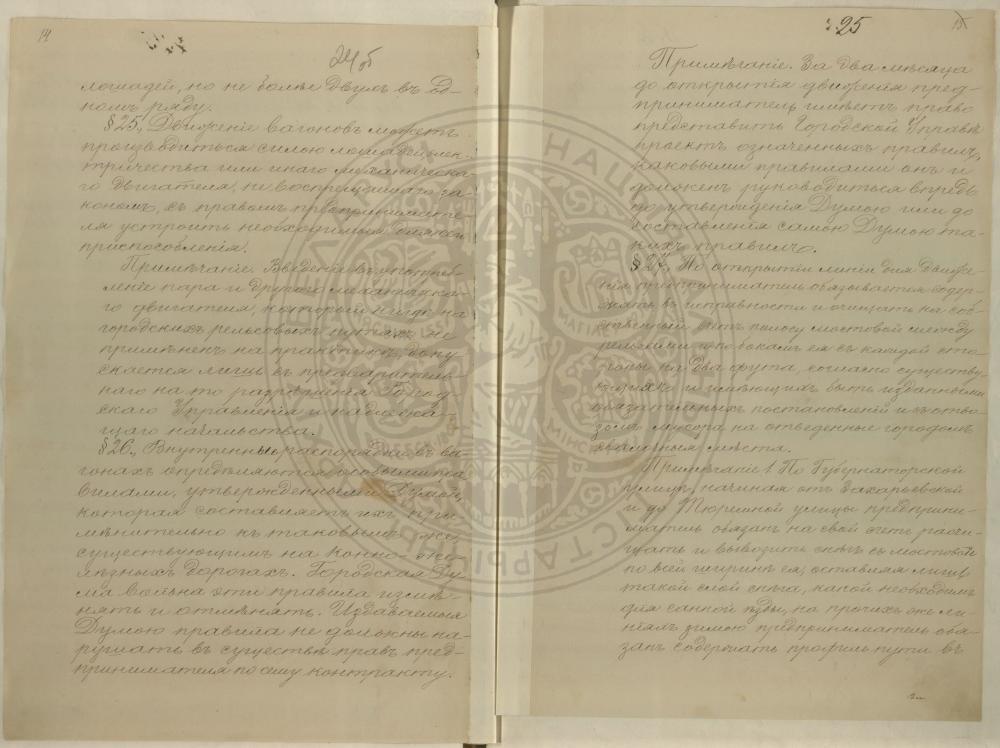 14
24 об
лошадей, но не более двухъ въ од-
номъ ряду.
§25., Движенiе вагоновъ можетъ
производиться силою лошадей, элек-
тричества или инаго механическа-
го двигателя, не воспрещеннаго за-
кономъ, съ правомъ предпринимате-
ля устроить необходимыя для сего
приспособленiя.
Примѣчанiе. Введенiе въ употреб-
ленiе пара и другого механическа-
го двигателя, который нигдѣ на
городскихъ рельсовыхъ путяхъ не
примѣненъ на практикѣ, допу-
скается лишь съ предваритель-
наго на то разрѣшенiя Город-
скаго Управленiя и надлежа-
щаго начальства.
§26., Внутреннiе распорядки въ ва-
гонахъ опредѣляются особыми пра-
вилами, утвержденными Думой,
которая составляетъ ихъ при-
мѣнительно къ таковымъ же,
существующимъ на конно-же-
лѣзныхъ дорогахъ. Городская Ду-
ма вольна эти правила измѣ-
нять и отмѣнять. Издаваемыя
Думою правила не должны на-
рушать въ существѣ правъ пред-
принимателя по сему контракту.
25
15
Примѣчанiе. За два мѣсяца
до открытiя движенiя пред-
приниматель имѣетъ право
представить Городской Управѣ
проектъ означенныхъ правилъ,
каковыми правилами онъ и
долженъ руководиться впредь
до утвержденiя Думою или до
составленiя самою Думою та-
кихъ правилъ.
§27., По открытiи линiи для движе-
нiя предприниматель обязывается содер-
жать въ исправности и очищать на соб-
ственный счетъ полосу мостовой между
рельсами и по бокамъ ея съ каждой сто-
роны на два фута, согласно существу-
ющихъ и имѣющихъ быть изданными
обязательныхъ постановленiй и съ отво-
зомъ мусора на отведенные городомъ
свалочныя мѣста.
Примѣчанiе 1. По Губернаторской
улицѣ, начиная отъ Захарьевской
и до Тюремной улицы предприни-
матель обязанъ на свой счетъ расчи-
щать и вывозить снѣгъ съ мостовой
по всей ширинѣ ея, оставляя лишь
такой слой снѣга, какой необходимъ
для санной ѣзды, на прочихъ же ли-
нiяхъ зимою предприниматель обя-
занъ содержать профиль пути въ